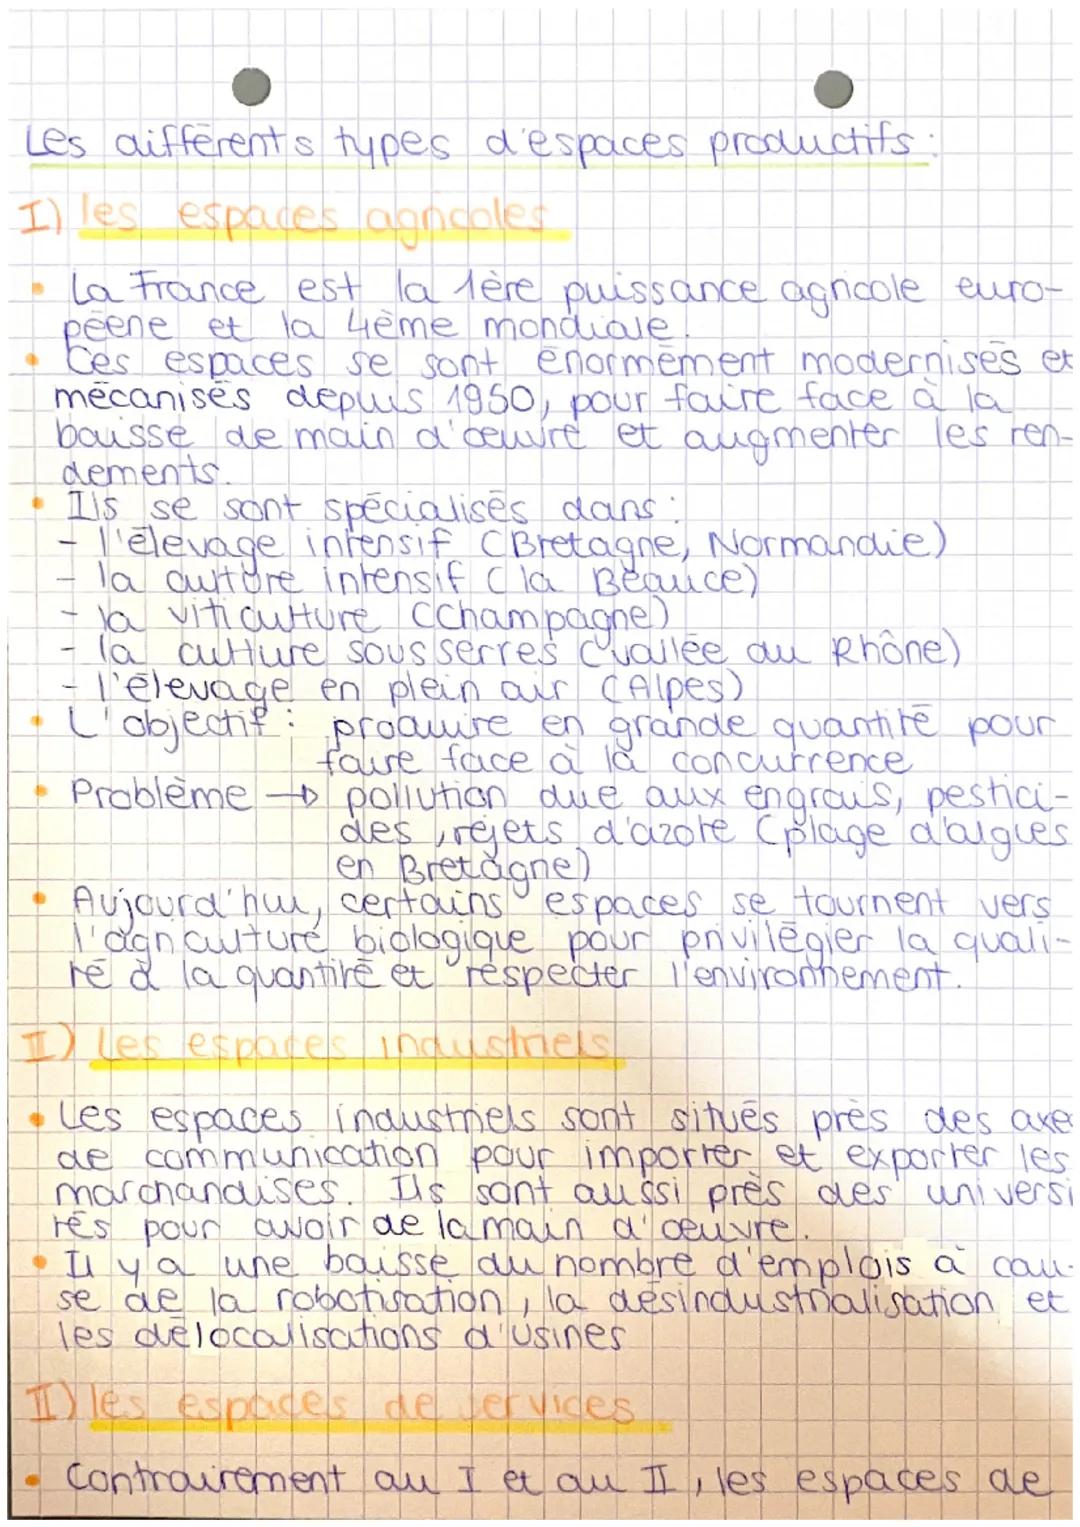 Les différents types d'espaces productifs :
I) les espaces agricoles
• La France est la 1ère puissance agricole euro-
péene et la 4ème mondiale.
• Ces espaces se sont énormément modernisés et
mécanisés depuis 1950, pour faire face à la
baisse de main d'œuvre et augmenter les ren-
dements.
• Ils se sont spécialisés dans :
- l'élevage intensif (Bretagne, Normandie)
- la culture intensif (la Beauce)
- la viticulture (Champagne)
- la culture sous serres (vallée du Rhône)
- l'élevage en plein air (Alpes)
• L'objectif : produire en grande quantité pour
faire face à la concurrence
• Problème → pollution due aux engrais, pestici-
des, rejets d'azote (plage d'algues
en Bretagne)
• Aujourd'hui, certains espaces se tournent vers
l'agriculture biologique pour privilégier la quali-
té à la quantité et respecter l'environnement.
II) Les espaces industriels
• Les espaces industriels sont situés près des axe
de communication pour importer et exporter les
marchandises. Ils sont aussi près des universi
tés pour avoir de la main d'œuvre.
• Il y a une baisse du nombre d'emplois à cau-
se de la robotisation, la désindustrialisation et
les délocalisations d'usines
II) les espaces de services
• Contrairement au I et au II, les espaces de